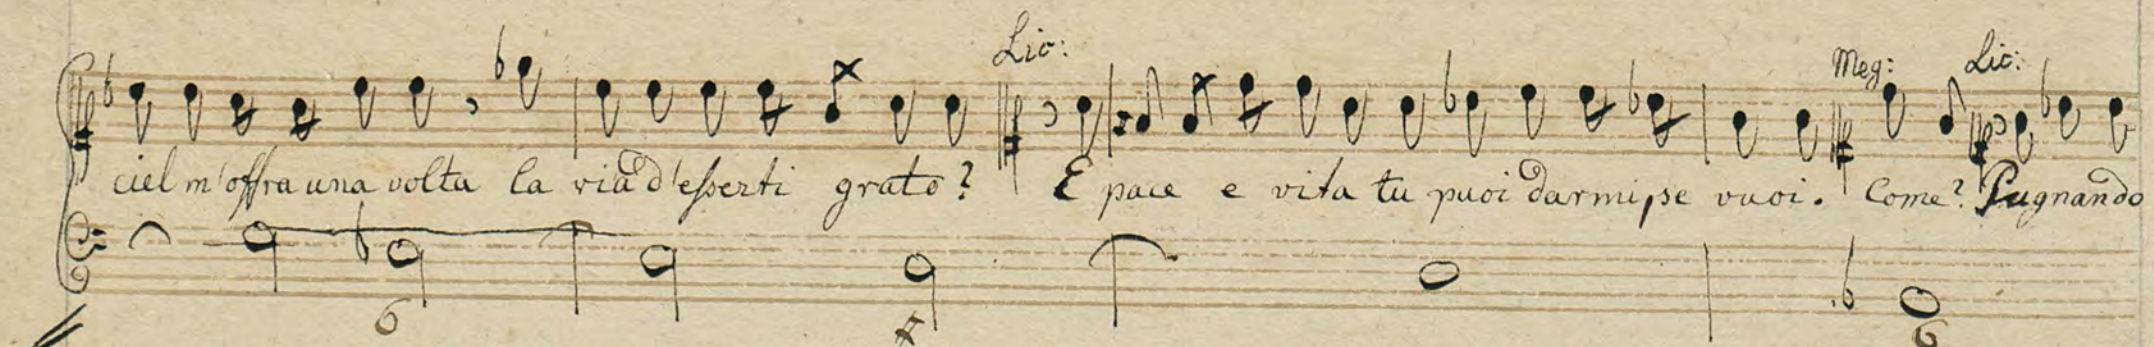 Lic: Meg: Lic:
ciel m'offra una volta la via d'esserti grato? E pace e vita tu puoi darmi, se vuoi. Come? Pugnando
6 6